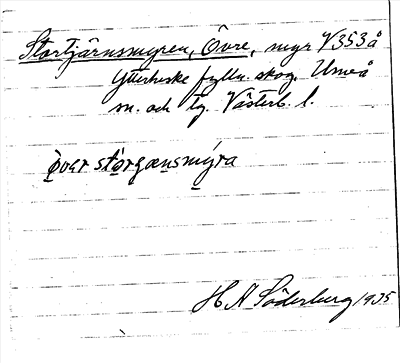 Stortjärnsmyren, Övre, myr V353å
Ytterbske fylln. skog. Umeå
sn. och tg. Västerb. l.
òvər stórgænsmýra
H A Söderburg 1935